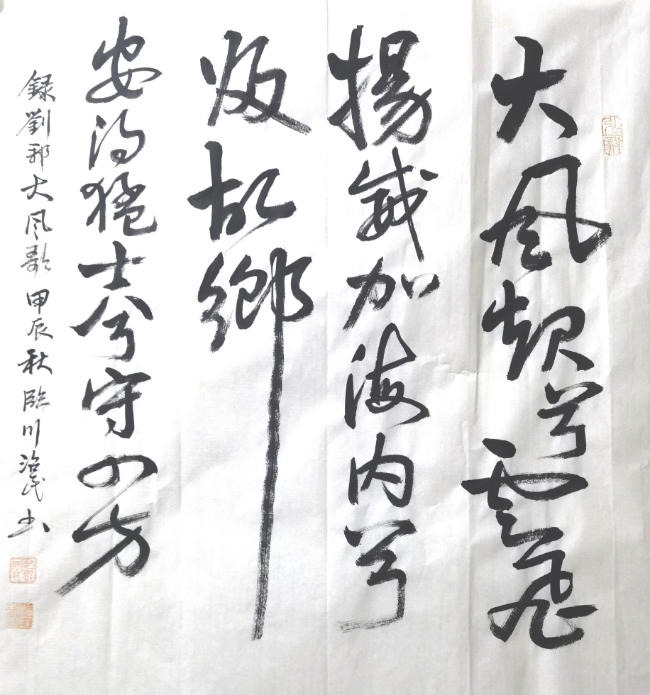 大風起兮雲飛
揚威加海内兮
歸故鄉
安得猛士兮守四方
錄劉邦大风歌 甲辰秋臨川治民书